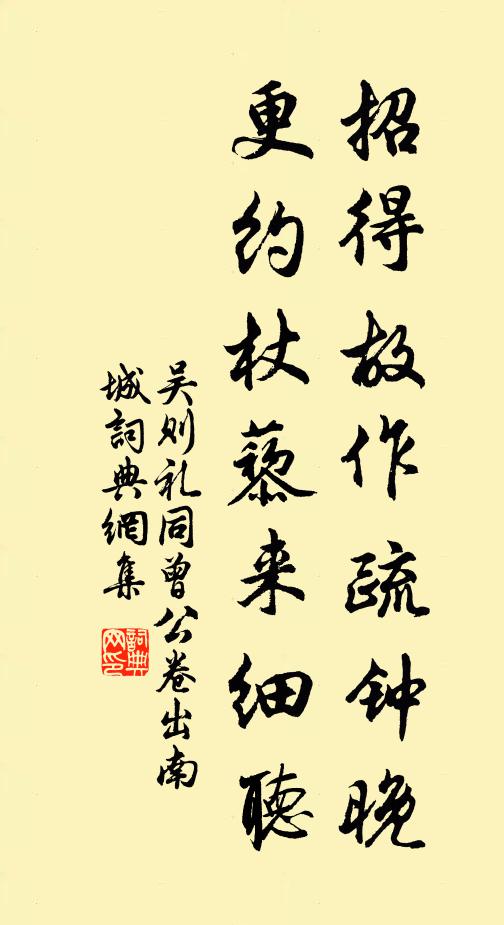 招得故作疏钟晚
更约杖藜来细聽
吴则礼同曾公卷出南
城詞典網集
詞典
网印